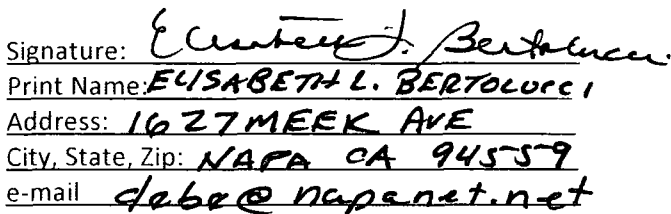 Signature: Elisabeth L. Bertolucci
Print Name: ELISABETH L. BERTOLUCCI
Address: 1627 MEEK AVE
City, State, Zip: NAPA CA 94559
e-mail debe@napanet.net